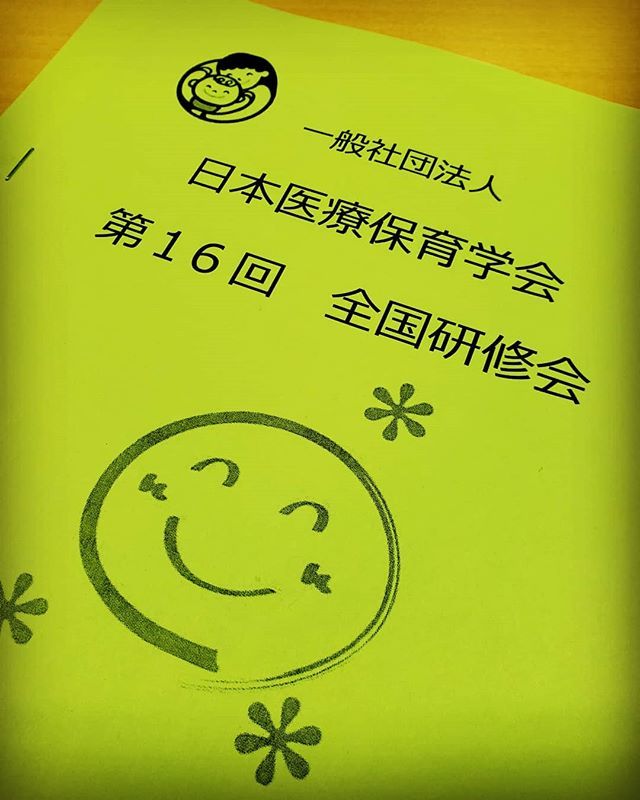 一般社団法人
日本医療保育学会
第16回 全国研修会